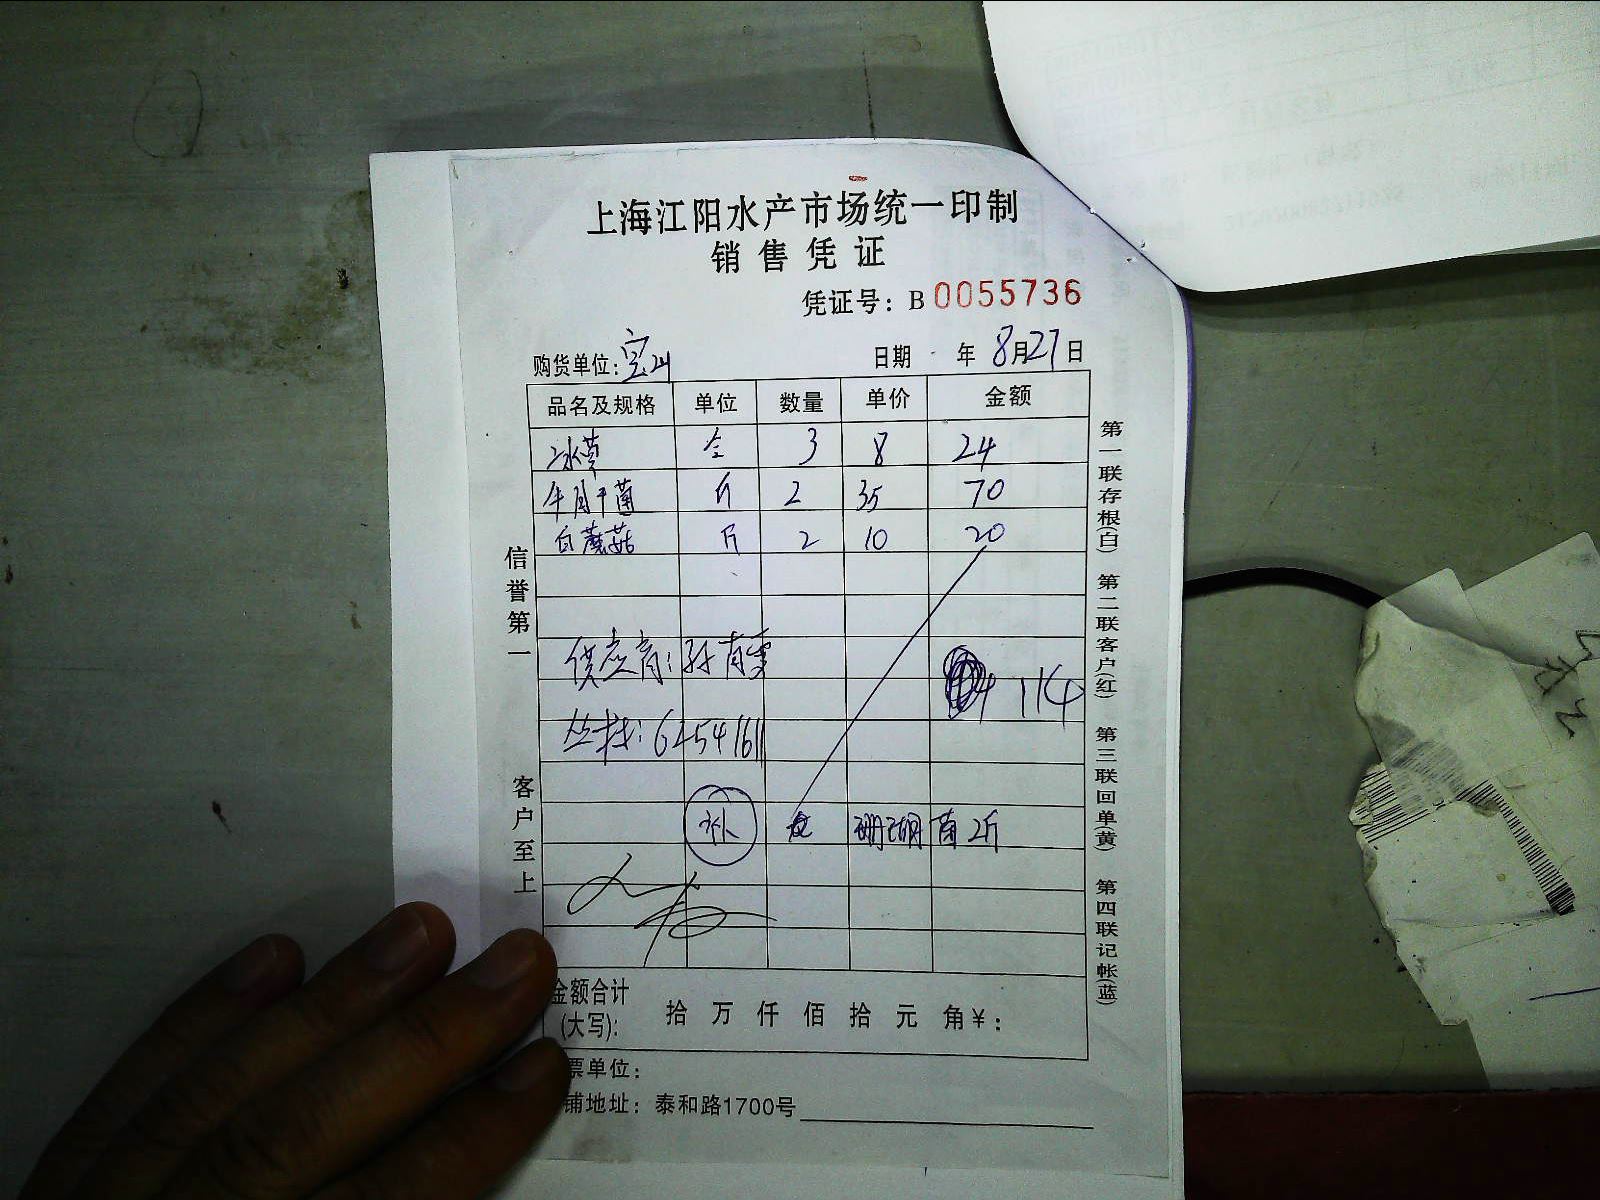 上海江阳水产市场统一印制
销售凭证
凭证号：B 0055736
购货单位：宝山 日期 年 8月27日
品名及规格 单位 数量 单价 金额
3 8 24
牛肝菌 斤 2 35 70
白蘑菇 斤 2 10 20
供应商：孙
114
丛林：62541611
补 珊瑚菌 2斤
金额合计
(大写)： 拾 万 仟 佰 拾 元 角 ¥：
票单位：
铺地址：泰和路1700号
信誉第一 客户至上
第一联存根(白) 第二联客户(红) 第三联回单(黄) 第四联记帐(蓝)